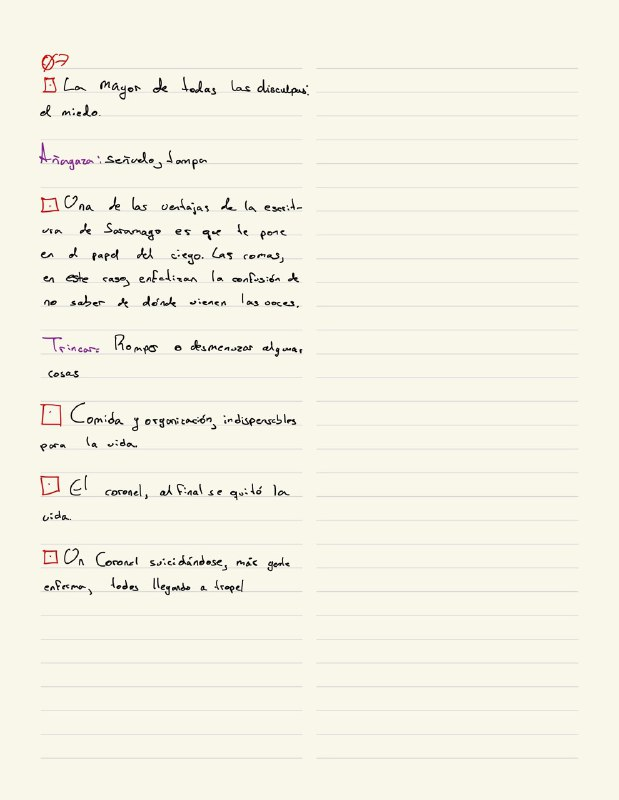 07
La mayor de todas las disculpas:
el miedo.
Añagaza: señuelo, trampa
Una de las ventajas de la escrit-
ura de Saramago es que te pone
en el papel del ciego. Las comas,
en este caso, enfatizan la confusión de
no saber de dónde vienen las voces.
Trincar: Romper o desmenuzar algunas
cosas
Comida y organización, indispensables
para la vida.
El coronel, al final se quitó la
vida.
Un Coronel suicidándose, más gente
enferma, todos llegando a tropel